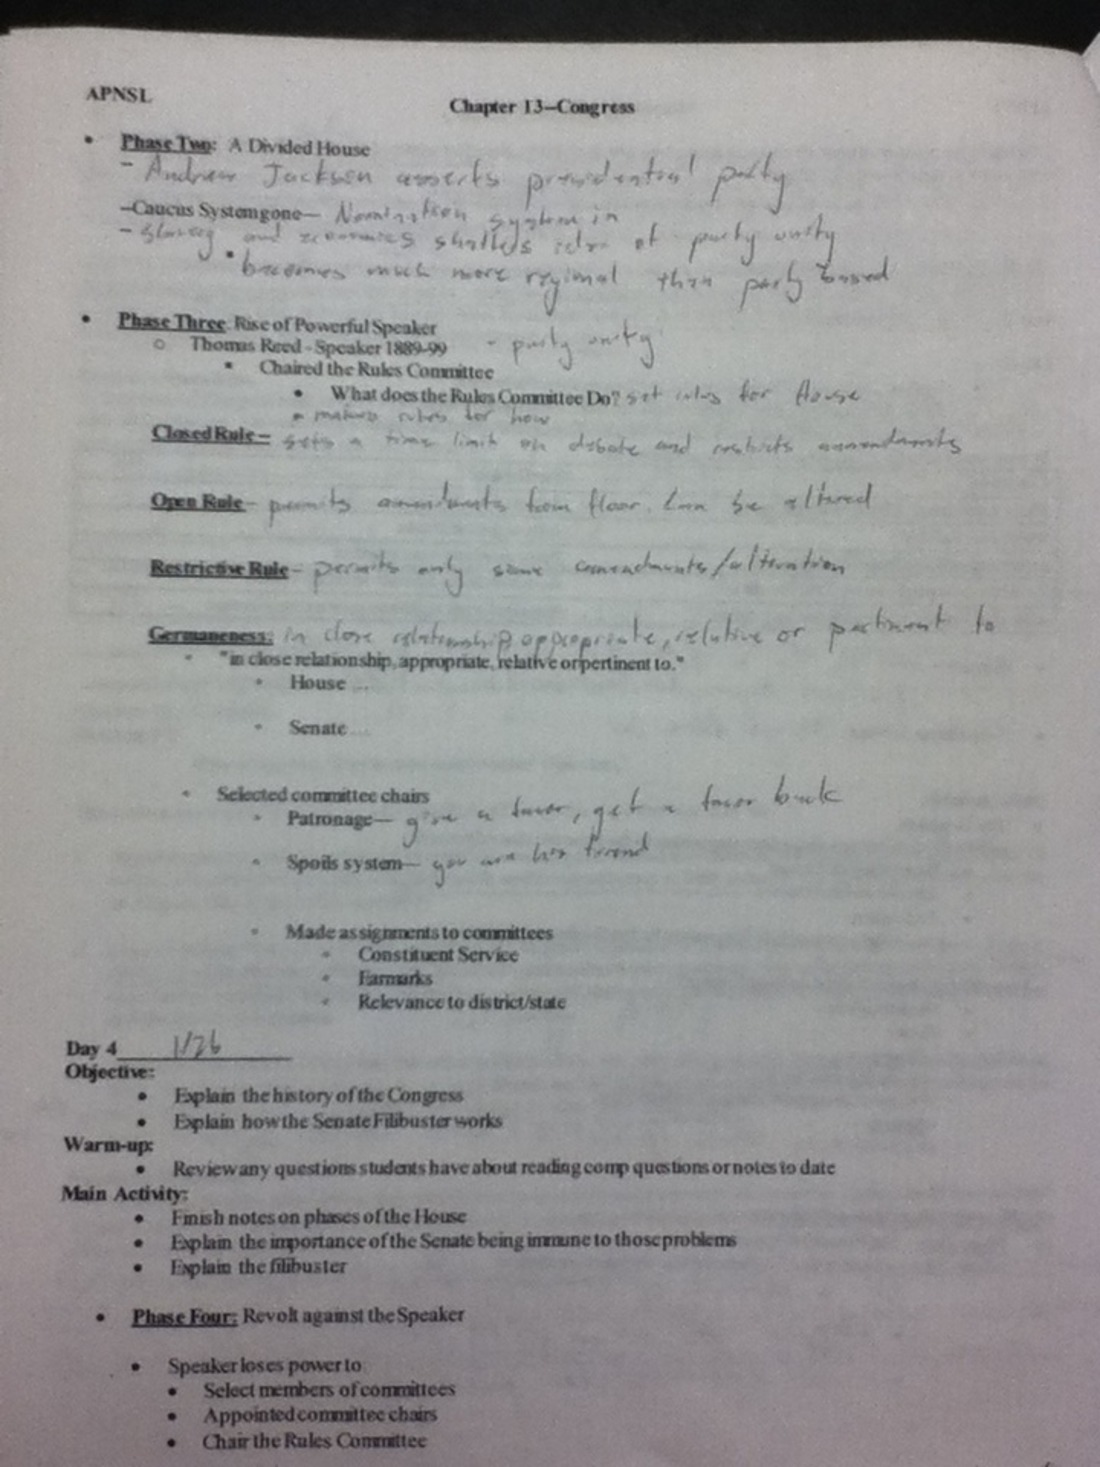 APNSL
Chapter 13–Congress
• Phase Two: A Divided House
- Andrew Jackson asserts presidential party
–Caucus System gone— Nomination system in
- Slavery and economics shatters idea of party unity
• becomes much more regional than party based
• Phase Three: Rise of Powerful Speaker
o Thomas Reed - Speaker 1889-99 - party unity
▪ Chaired the Rules Committee
• What does the Rules Committee Do? set rules for House
makes rules for how
Closed Rule – sets a time limit on debate and restricts amendments
Open Rule – permits amendments from floor. Can be altered
Restrictive Rule – permits only some amendments/alteration
Germaneness: in close relationship, appropriate, relative or pertinent to
"in close relationship, appropriate, relative or pertinent to."
House ...
Senate ...
Selected committee chairs
Patronage— give a favor, get a favor back
Spoils system— you are his friend
Made assignments to committees
Constituent Service
Earmarks
Relevance to district/state
Day 4 1/26
Objective:
• Explain the history of the Congress
• Explain how the Senate Filibuster works
Warm-up:
• Review any questions students have about reading comp questions or notes to date
Main Activity:
• Finish notes on phases of the House
• Explain the importance of the Senate being immune to those problems
• Explain the filibuster
• Phase Four: Revolt against the Speaker
• Speaker loses power to
• Select members of committees
• Appointed committee chairs
• Chair the Rules Committee